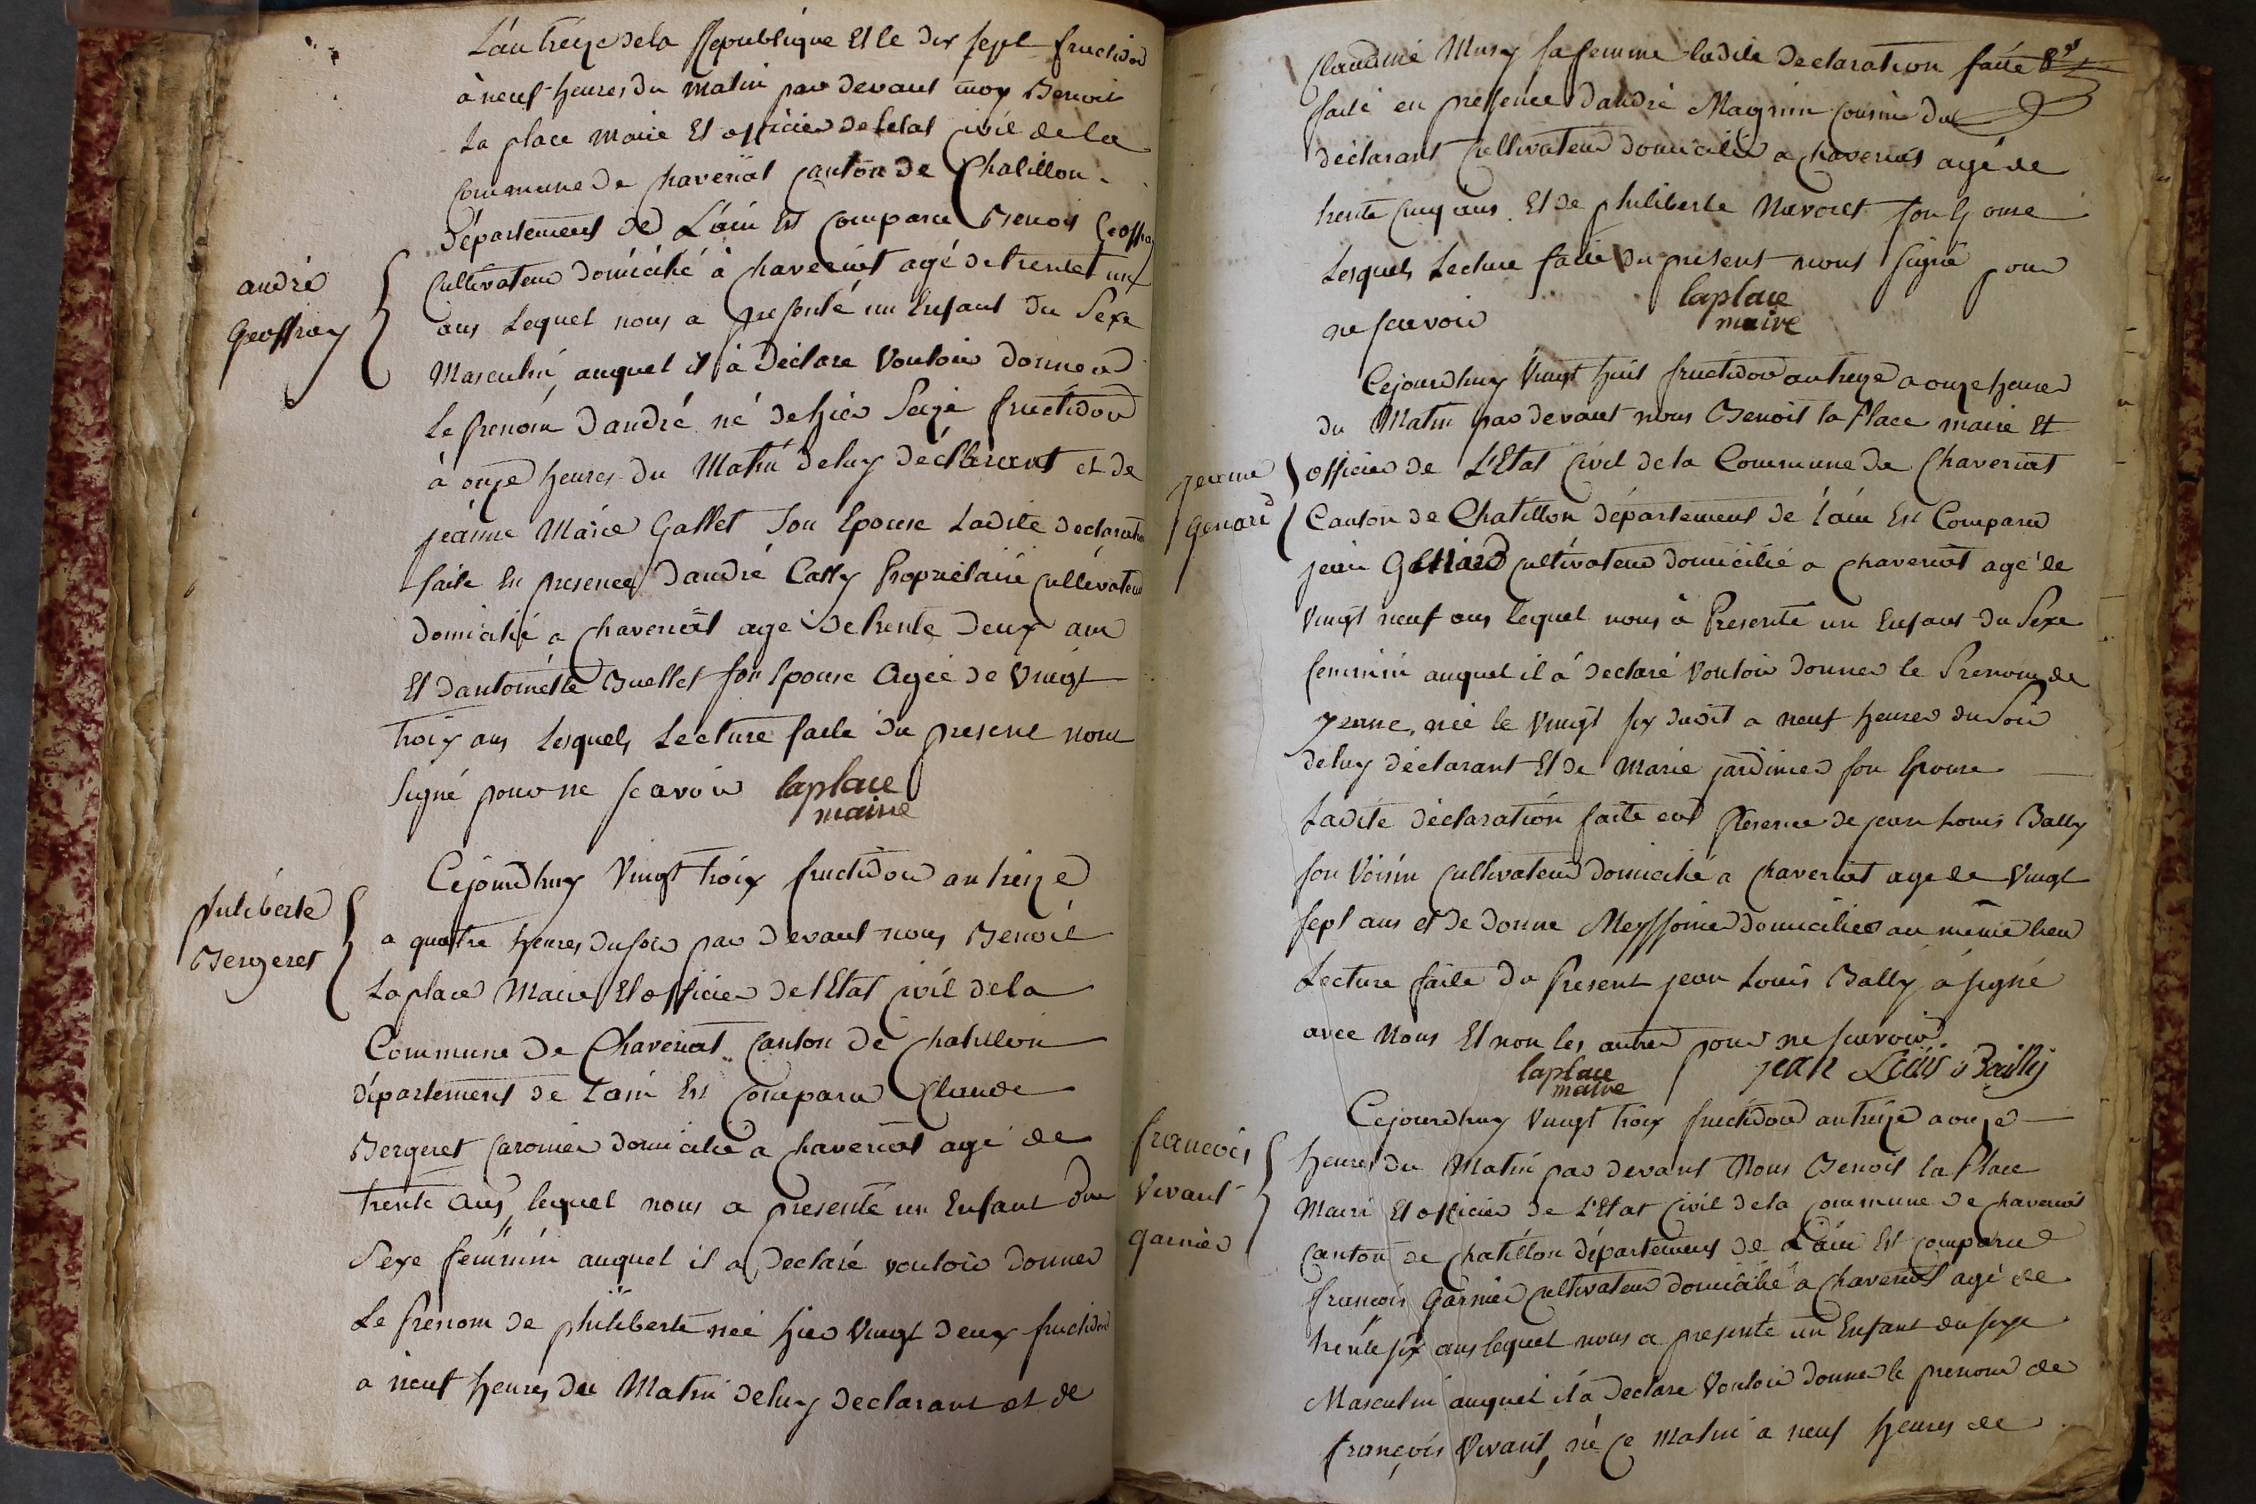 L'an treize de la Republique Et le dix sept fructidor
à neuf heures du matin par devant moy Benoit
La place maire Et officier de letat Civil de la
Commune de Chaveriat Canton de Chatillon
Département de L'ain Est Comparu Benoit Geoffray
Cultivateur domicilié à Chaveriat agé de trentet un
ans Lequel nous a presenté un Enfant du Sexe
Masculin auquel il à Déclare Vouloir donner
Le prenom d'andré né de hier Seize fructidor
à onze heures du Matin de luy déclarant et de
jeanne Marie Gallet Son Epouse Ladite declaration
faite En presence d'andré Cathy Proprietaire Cultivateur
Domicilié a Chaveriat agé de trente Deux ans
Et d'antoinette Buellet son Epouse Agée de Vingt
trois ans Lesquels Lecture faite du present n'ont
Signé pour ne scavoir laplace
maire
andré
Geoffray
Cejourdhuy Vingt trois fructidor an treize
a quatre heures du soir par devant nous Benoit
La place Maire Et officier de l'Etat Civil de la
Commune de Chaveriat Canton de Chatillon
département de L'ain Est Comparu Claude
Bergeret Caronier domicilié a Chaveriat agé de
trente ans, lequel nous a presenté un Enfant du
Sexe feminin auquel il a Declaré vouloir donner
Le prenom de philiberte née hier Vingt deux fructidor
a neuf heures du Matin de luy declarant et de
philiberte
Bergeret
Claudine Musy sa femme ladite Declaration faite
faite en presence d'andré Magnin Cousin du
déclarant Cultivateur domicilié a Chaveriat agé de
trente Cinq ans Et de philiberte Navoret son Epouse
Lesquels Lecture faite du présent n'ont Signé pour
ne scavoir laplace
maire
Cejourdhuy Vingt huit fructidor an treize a onze heures
du Matin par devant nous Benoit la Place maire Et
officier de L'Etat Civil de la Commune de Chaveriat
Canton de Chatillon département de l'ain Est Comparu
jean Genard Cultivateur domicilié a Chaveriat agé de
Vingt neuf ans lequel nous à Presenté un Enfant du Sexe
feminin auquel il à déclaré Vouloir donner le Prenom de
jeanne, née le Vingt six dudit a neuf heures du Soir
de luy déclarant Et de Marie jardinier son Epouse
Ladite déclaration faite en Présence de jean Louis Bally
son Voisin Cultivateur domicilié a Chaveriat agé de Vingt
sept ans et de donne Meyssonier domiciliée au même lieu
Lecture faite du Present jean Louis Bally à signé
avec Nous Et non les autres pour ne scavoir
laplace jean Louis Bailly
maire
jeanne
Genard
Cejourdhuy Vingt trois fructidor an treize a onze
heures du Matin par devant Nous Benoit la Place
Maire Et officier de L'Etat Civil de la Commune de Chaveriat
Canton de Chatillon département de L'ain Est Comparu
françois Garnier Cultivateur domicilié a Chaveriat agé de
trente six ans lequel nous a presenté un Enfant du sexe
Masculin auquel il à Déclaré Vouloir donner le prenom de
françois Vivant, né Ce Matin a neuf heures de
francois
Vivant
Garnier